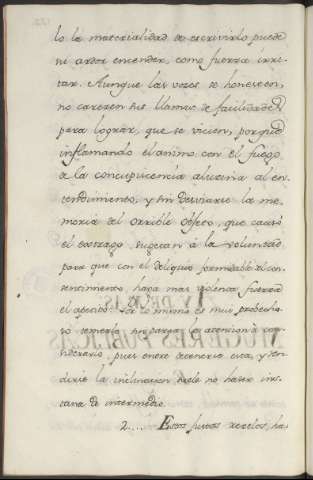 lo la materialidad de escrivirlo puede
ni ardor encender, como fuerza irri-
tar. Aunque las vozes se honesten,
no carecen sus llamas de facilidades
para lograr, que se vicien, porque
inflamando el animo con el fuego
de la concupicencia alucina al en-
tendimiento, y sin desviarse la me-
moria del orrible objeto, que causó
el estrago, sugetan à la voluntad
para que con el deliquio formidable del con-
sentimiento haga mas violenta fuerza
el apetito. Por lo mismo es muy probecho-
so temerlo, sin parar la atencion à con-
siderarlo, pues entre tenerlo esta, y ren-
dirse la inclinacion suele no haver ins-
tante de intermedio.
2.... Estos justos recelos, ha-